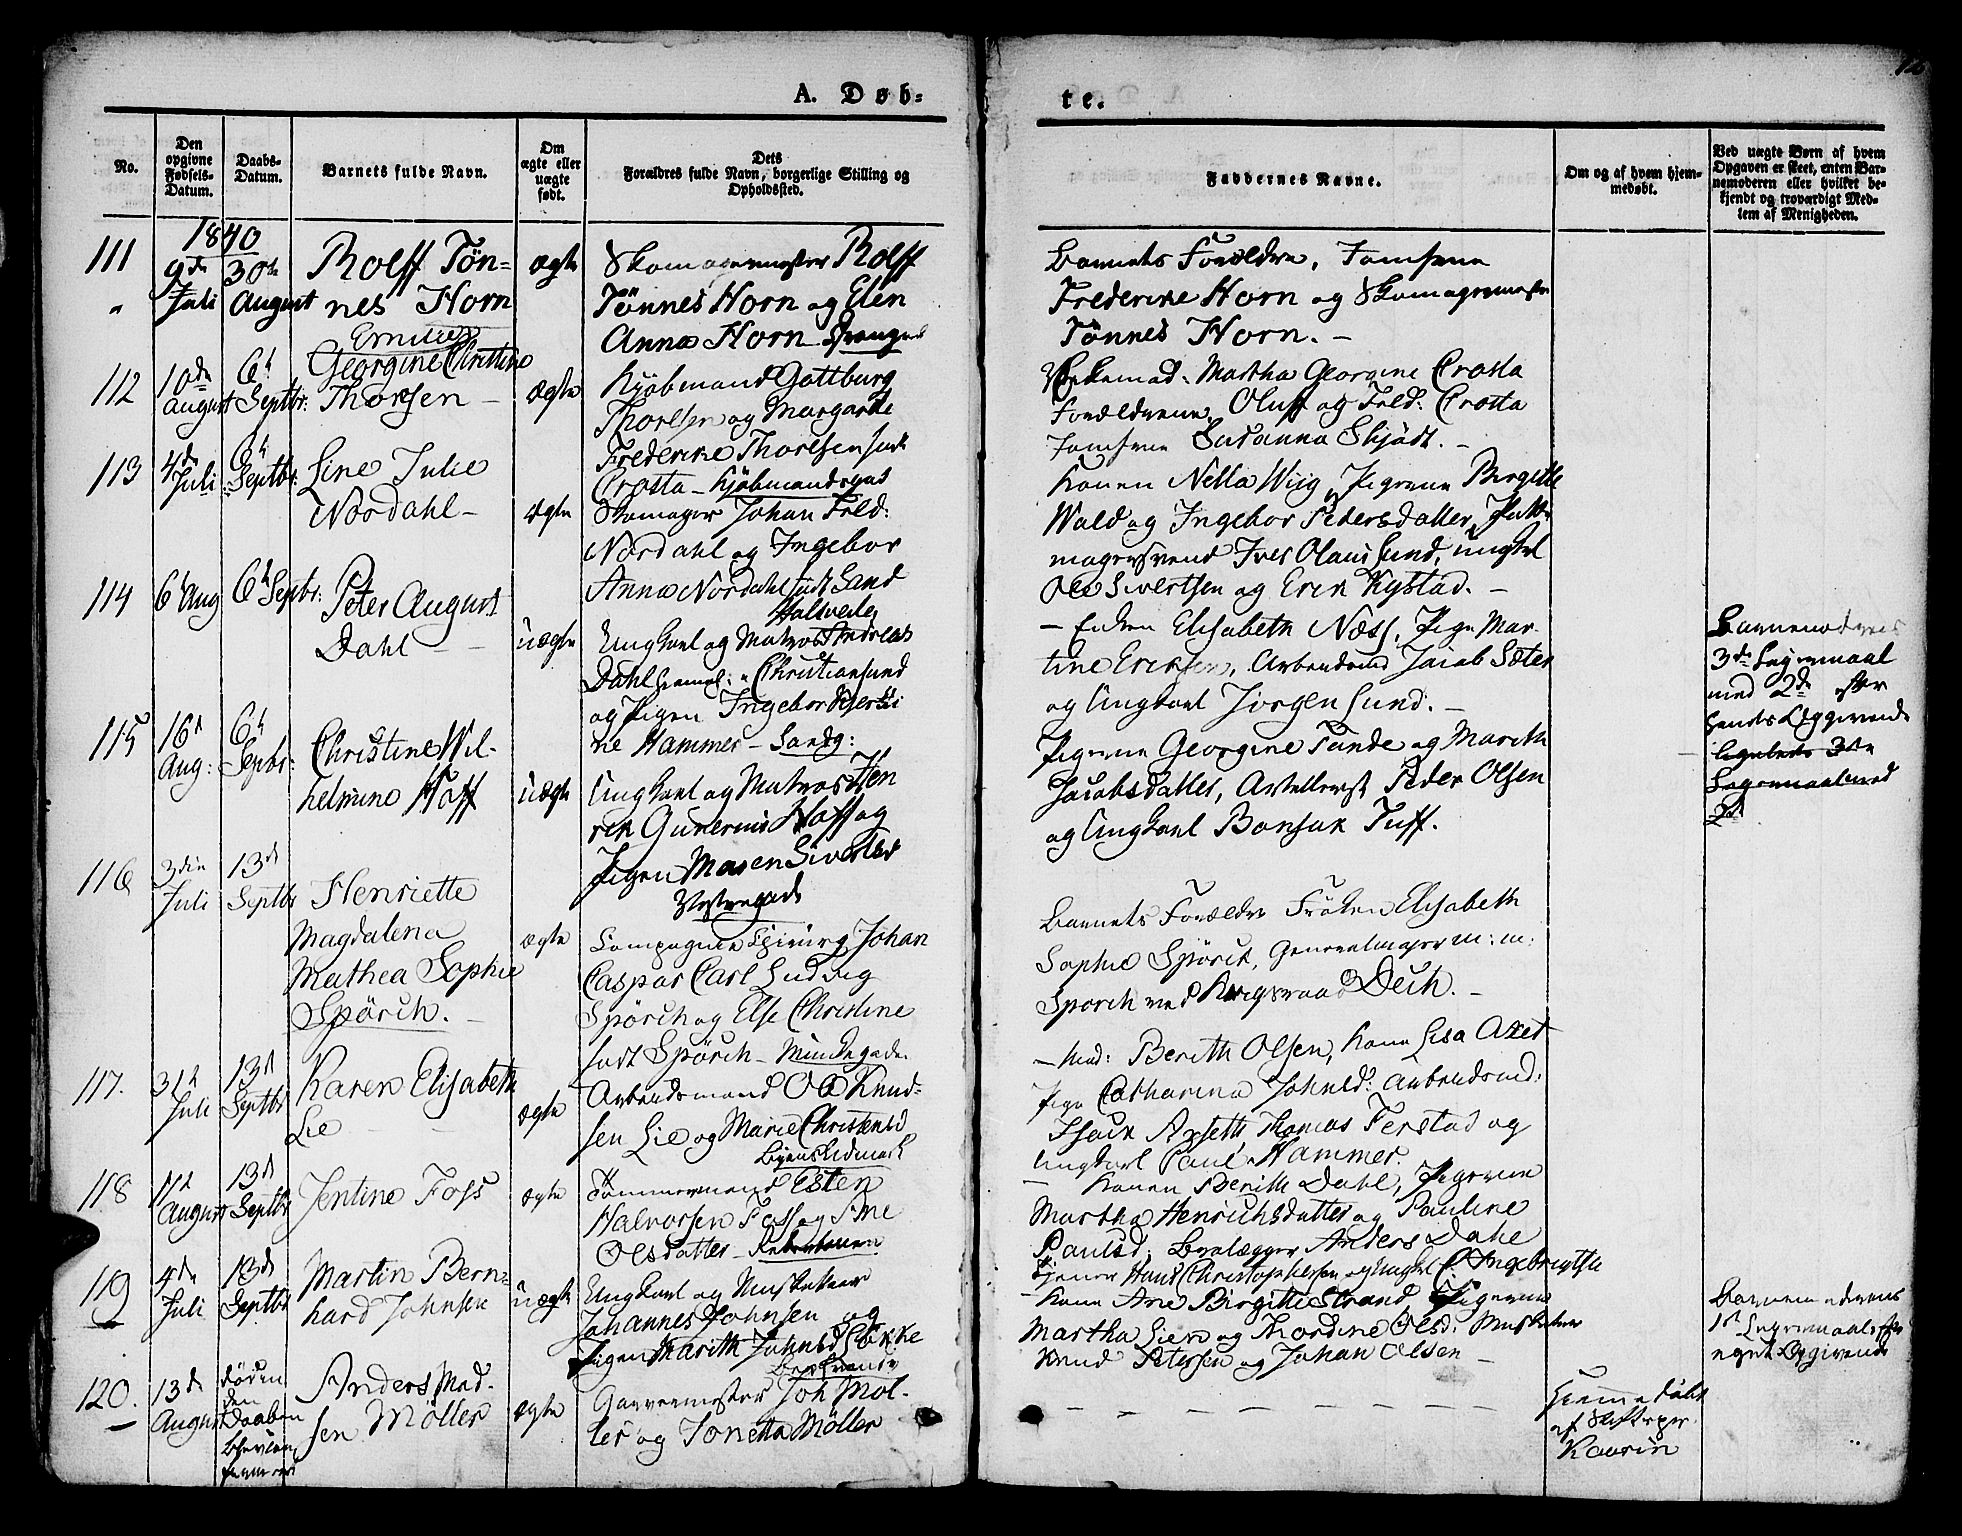 A. Døb=
te.
No.
Den opgivne Fødsels-Datum.
Daabs-Datum.
Barnets fulde Navn.
Om ægte eller uægte født.
Dets Forældres fulde Navn, borgerlige Stilling og Opholdssted.
Faddernes Navne.
Om og af hvem hjemmedøbt.
Ved uægte Børn af hvem Opgaven er skeet, enten Barnemoderen eller hvilket bekjendt og troværdigt Medlem af Menigheden.
1840
111
9de Juli
30te August
Rolff Tön=
nes Horn
ægte
Skomagermester Rolff
Tönnes Horn og Elen
Anna Horn
Barnets Forældre, Jomfrue
Frederike Horn og Skomagermester
Tönnes Horn. –
112
10de August
6te Septbr:
Georgine Christine
Thorsen –
ægte
Kjöbmand Gottburg
Thorlsen og Margarete
Frederike Thorlsen födt
Crosta – Kjöbmandsgad
Martha Georgine Crosta
Forældrene, Oluff og Fred: Crosta
Jomfrue Susanna Skjödt. –
113
4de Juli
6te Septbr:
Line Julie
Nordahl –
ægte
Skomager Johan Fred:
Nordahl og Ingebor
Anna Nordahl födt Sand
Konen Nella Wiig, Pigerne Birgitte
Wald og Ingebor Pedersdatter,
magersvend Iver Olaus Sund, Ungkal
Ole Sivertsen og Erik Kystad. –
114
6te Aug
6te Septbr:
Peter August
Dahl – –
uægte
Ungkarl og Matros Andreas
Dahl Christiansund
og Pigen Ingebor
ne Hammer – Sandg:
– Enken Elisabeth Næss, Pige Mar-
tine Eriksen, Arbeidsmd Jacob Sæter
og Ungkarl Jörgen Sund. –
Barnemoderens
3de Leiermaal
med 2de efter
hendes Opgivende
115
16de Aug:
6te Septbr:
Christine Wil-
helmine Hoff
uægte
Ungkarl og Matros Hen
rik Gunerius Hoff og
Pigen Maren Sivertsd
Pigerne Georgine Sande og Marith
Jacobsdatter, Peder Olsen
og Ungkarl Bonsak Tuff.
116
3die Juli
13de Septbr
Henriette
Magdalena
Mathea Sophie
Spörch. –
ægte
Compagnie Chirurg Johan
Caspar Carl Ludvig
Spörch og Else Christine
födt Spörch – Munkegade.
Barnets Forældre Fröken Elisabeth
Sophie Spörck, Generalmajor m: m:
Spörch ved Krigsraad Dech. –
117.
31te Juli
13de Septbr
Karen Elisabeth
Lie – –
ægte
Arbeidsmand Ole Knud=
sen Lie og Marie Christensd
– Mad: Berith Olsen, Kone Lisa Axet
Pige Catharina Johnsd: Arbeidsmd:
Isack Axseth, Thomas Ferstad og
Ungkarl Paul Hammer.
118
11te August
13de Septbr
Jentine Foss
ægte
Tömmermand Esten
Halvorsen Foss og Ane
Olsdatter –
– Konen Berith Dahl, Pigerne
Martha Henrichsdatter og Pauline
Paulsd: Anders Dahl
Tjener Hans Christophersen og Ungkl E Ingebrigtse
119
4de Juli
13de Septbr
Martin Bern=
hard Johnsen
uægte
Ungkarl og Musketeer
Johannes Johnsen og
Pigen Marith Johnsd Lökke
Kone Ane Birgitte Strand Pigerne
Martha Lien og Thordine Olsd: Musketeer
Knud Petersen og Johan Olsen –
Barnemoderens
1ste Leiermaal efter
eget Opgivende
120.
13de August
Anders Mad.
sen Möller
ægte
Garvermester Joh Möl-
ler og Jonetta Möller
– – – – – – – –
Hjemmedöbt
af
Kaurin